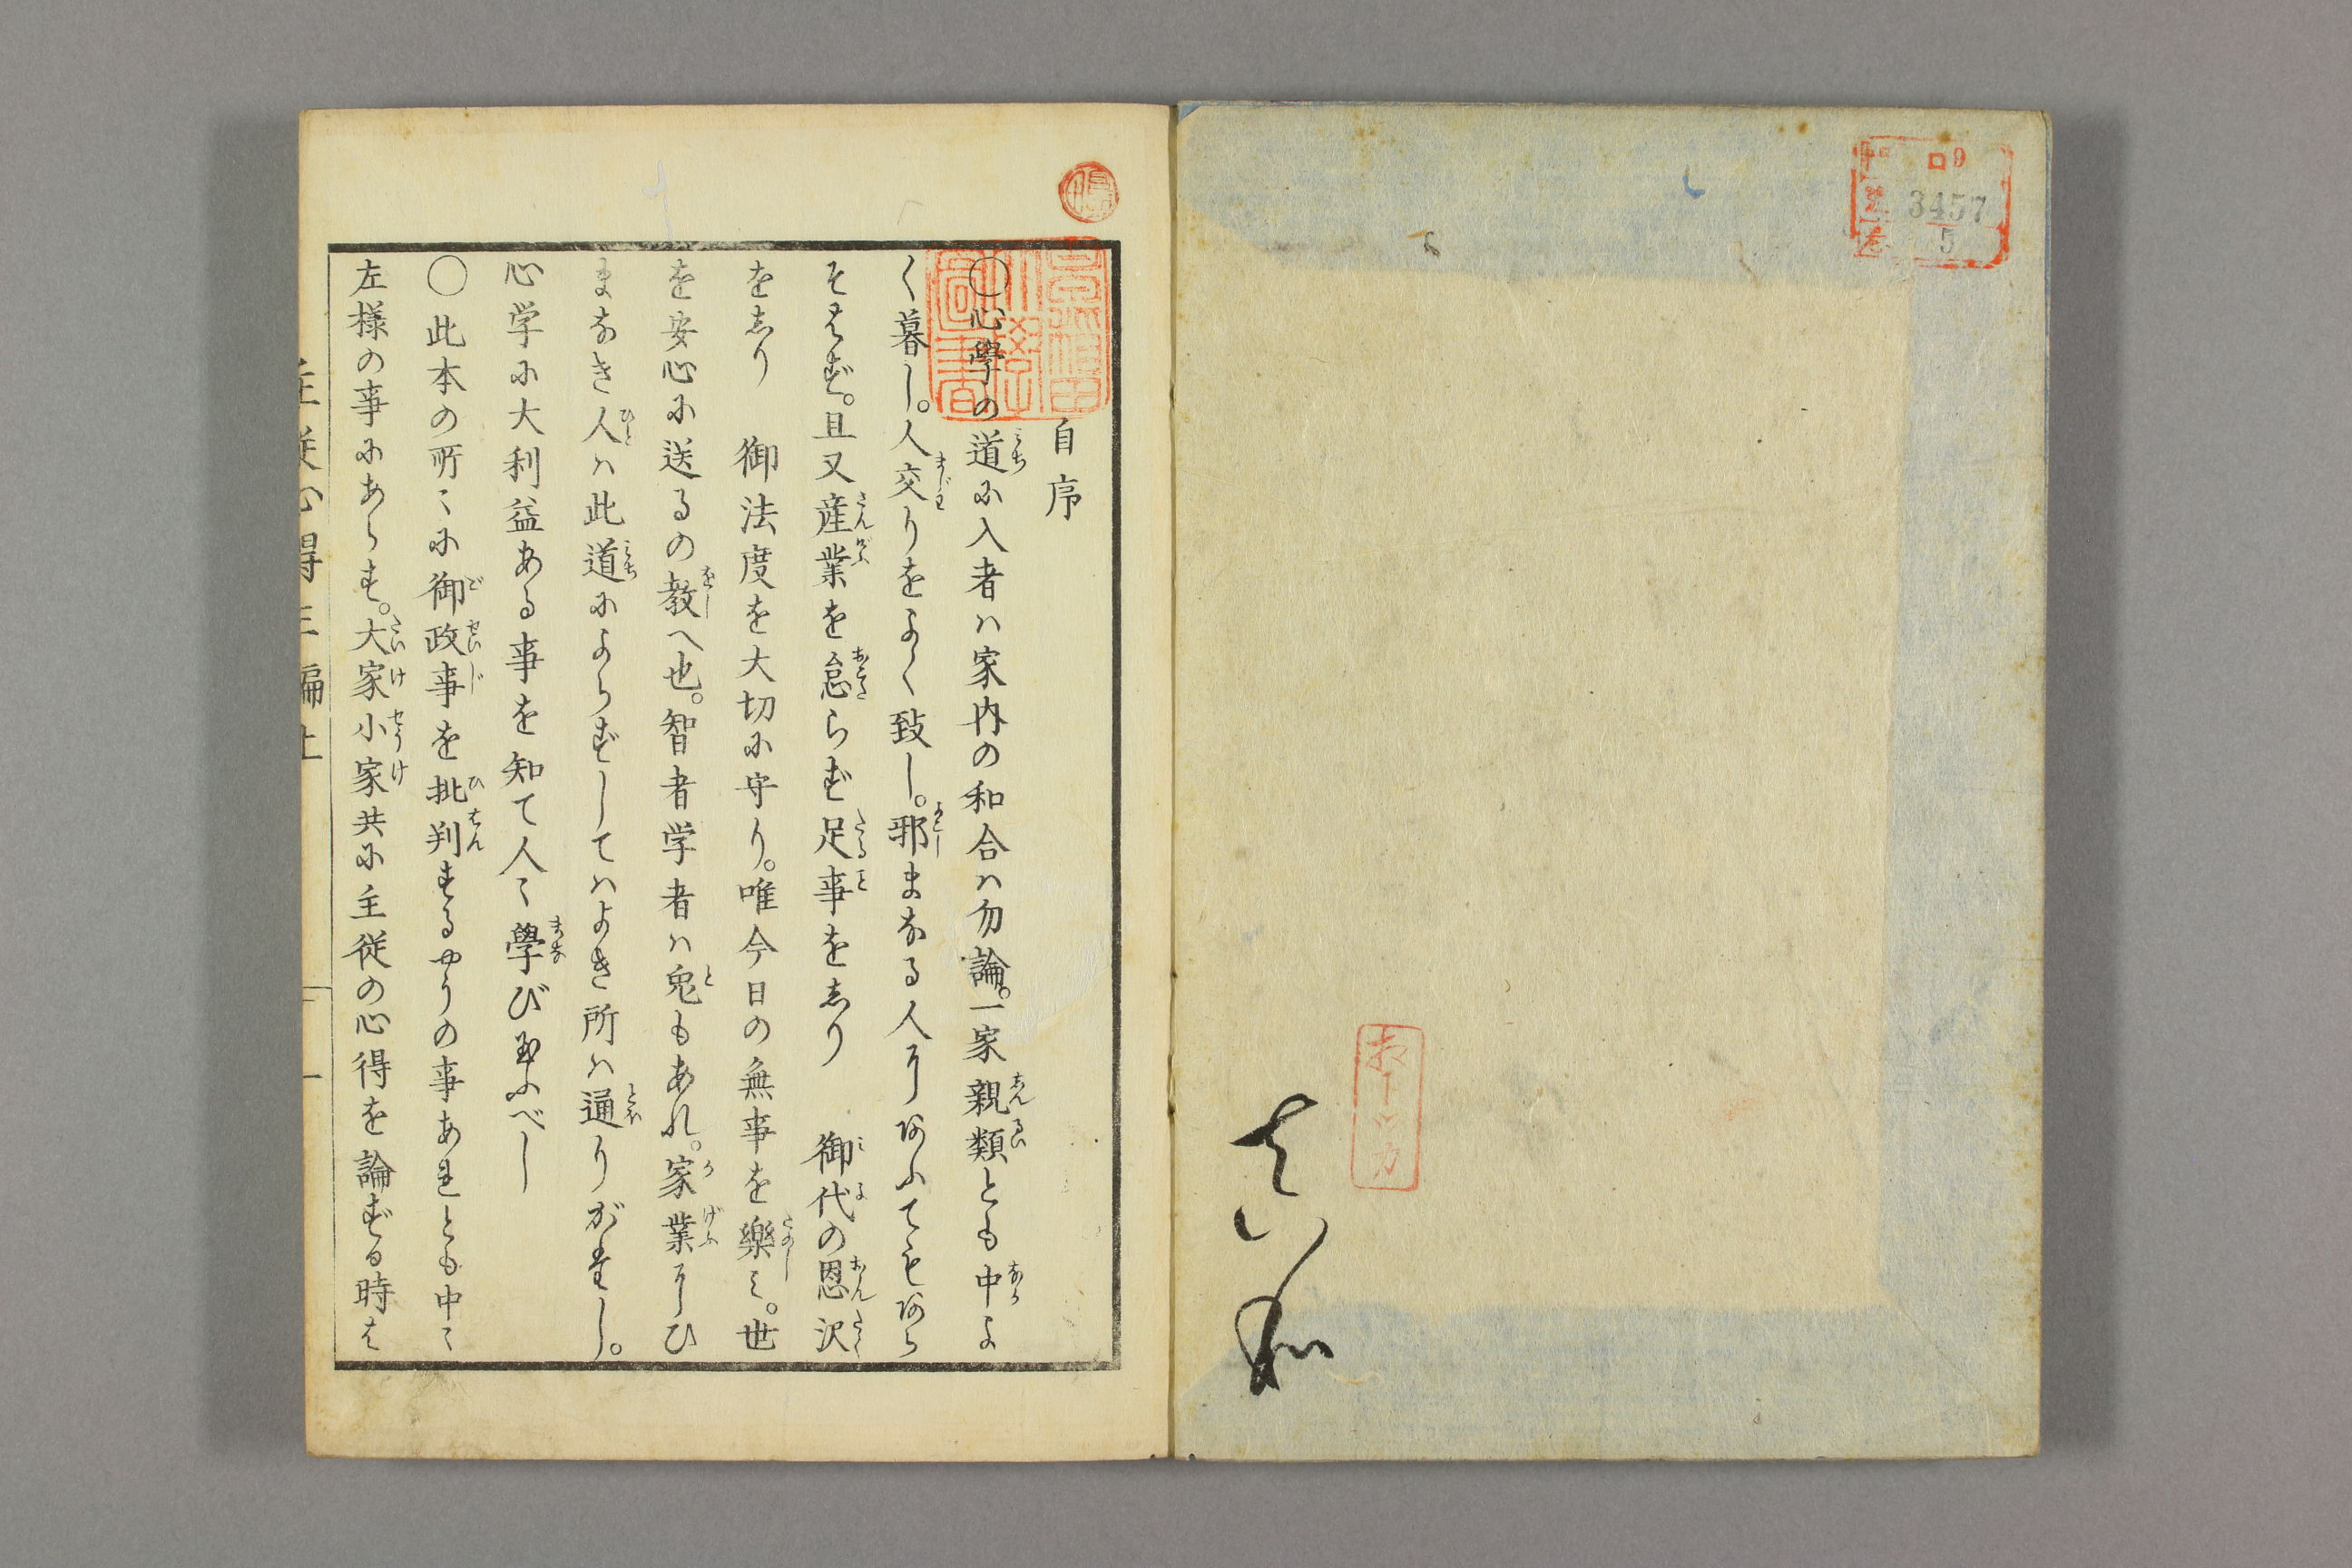 ロ9
3457
5
自序
○心學の道に入者ハ家内の和合ハ勿論。一家親類とも中よ
く暮し。人交りをよく致し。邪まなる人にハあふてもあら
そはず。且又産業を怠らず足事をしり 御代の恩沢
をしり 御法度を大切に守り。唯今日の無事を樂ミ。世
を安心に送るの教へ也。智者学者ハ兎もあれ。家業にひ
まなき人ハ此道によらずしてハよき所ハ通りがたし。
心学に大利益ある事を知て人〻學び玉ふべし
○此本の所〻に御政事を批判するやうの事あれとも中〻
左様の事にあらす。大家小家共に主従の心得を論ずる時は
主従心得三編上